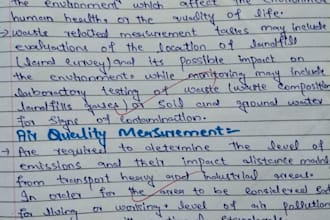 the environment which affect the environment
human health, or the quality of life.
→ Waste related measurement tasks may include
evaluations of the location of landfill
(land survey) and its possible impact on
the environment. while monitoring may include
laboratory testing of waste (waste composition
landfills gases) or soil and ground water
for signs of contamination.
Air Quality Mersurement=
→ Are required to determine the level of
emissions and their impact alistance
from transport heavy and industrial areas.
In order for the area to be considered
for living or working. level of air pollution